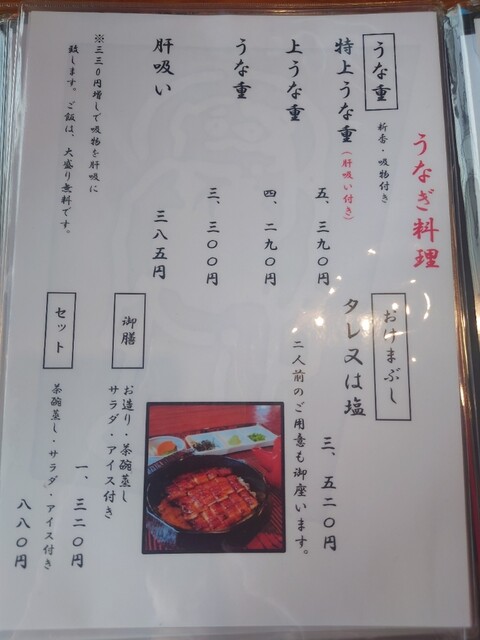 うなぎ料理
うな重
新香・吸物付き
特上うな重(肝吸い付き)
五、三九〇円
上うな重
四、二九〇円
うな重
三、三〇〇円
肝吸い
三八五円
※三三〇円増しで吸物を肝吸に
致します。ご飯は、大盛り無料です。
おけまぶし
タレ又は塩
三、五二〇円
二人前のご用意も御座います。
御膳
お造り・茶碗蒸し
サラダ・アイス付き
一、三二〇円
セット
茶碗蒸し・サラダ・アイス付き
八八〇円